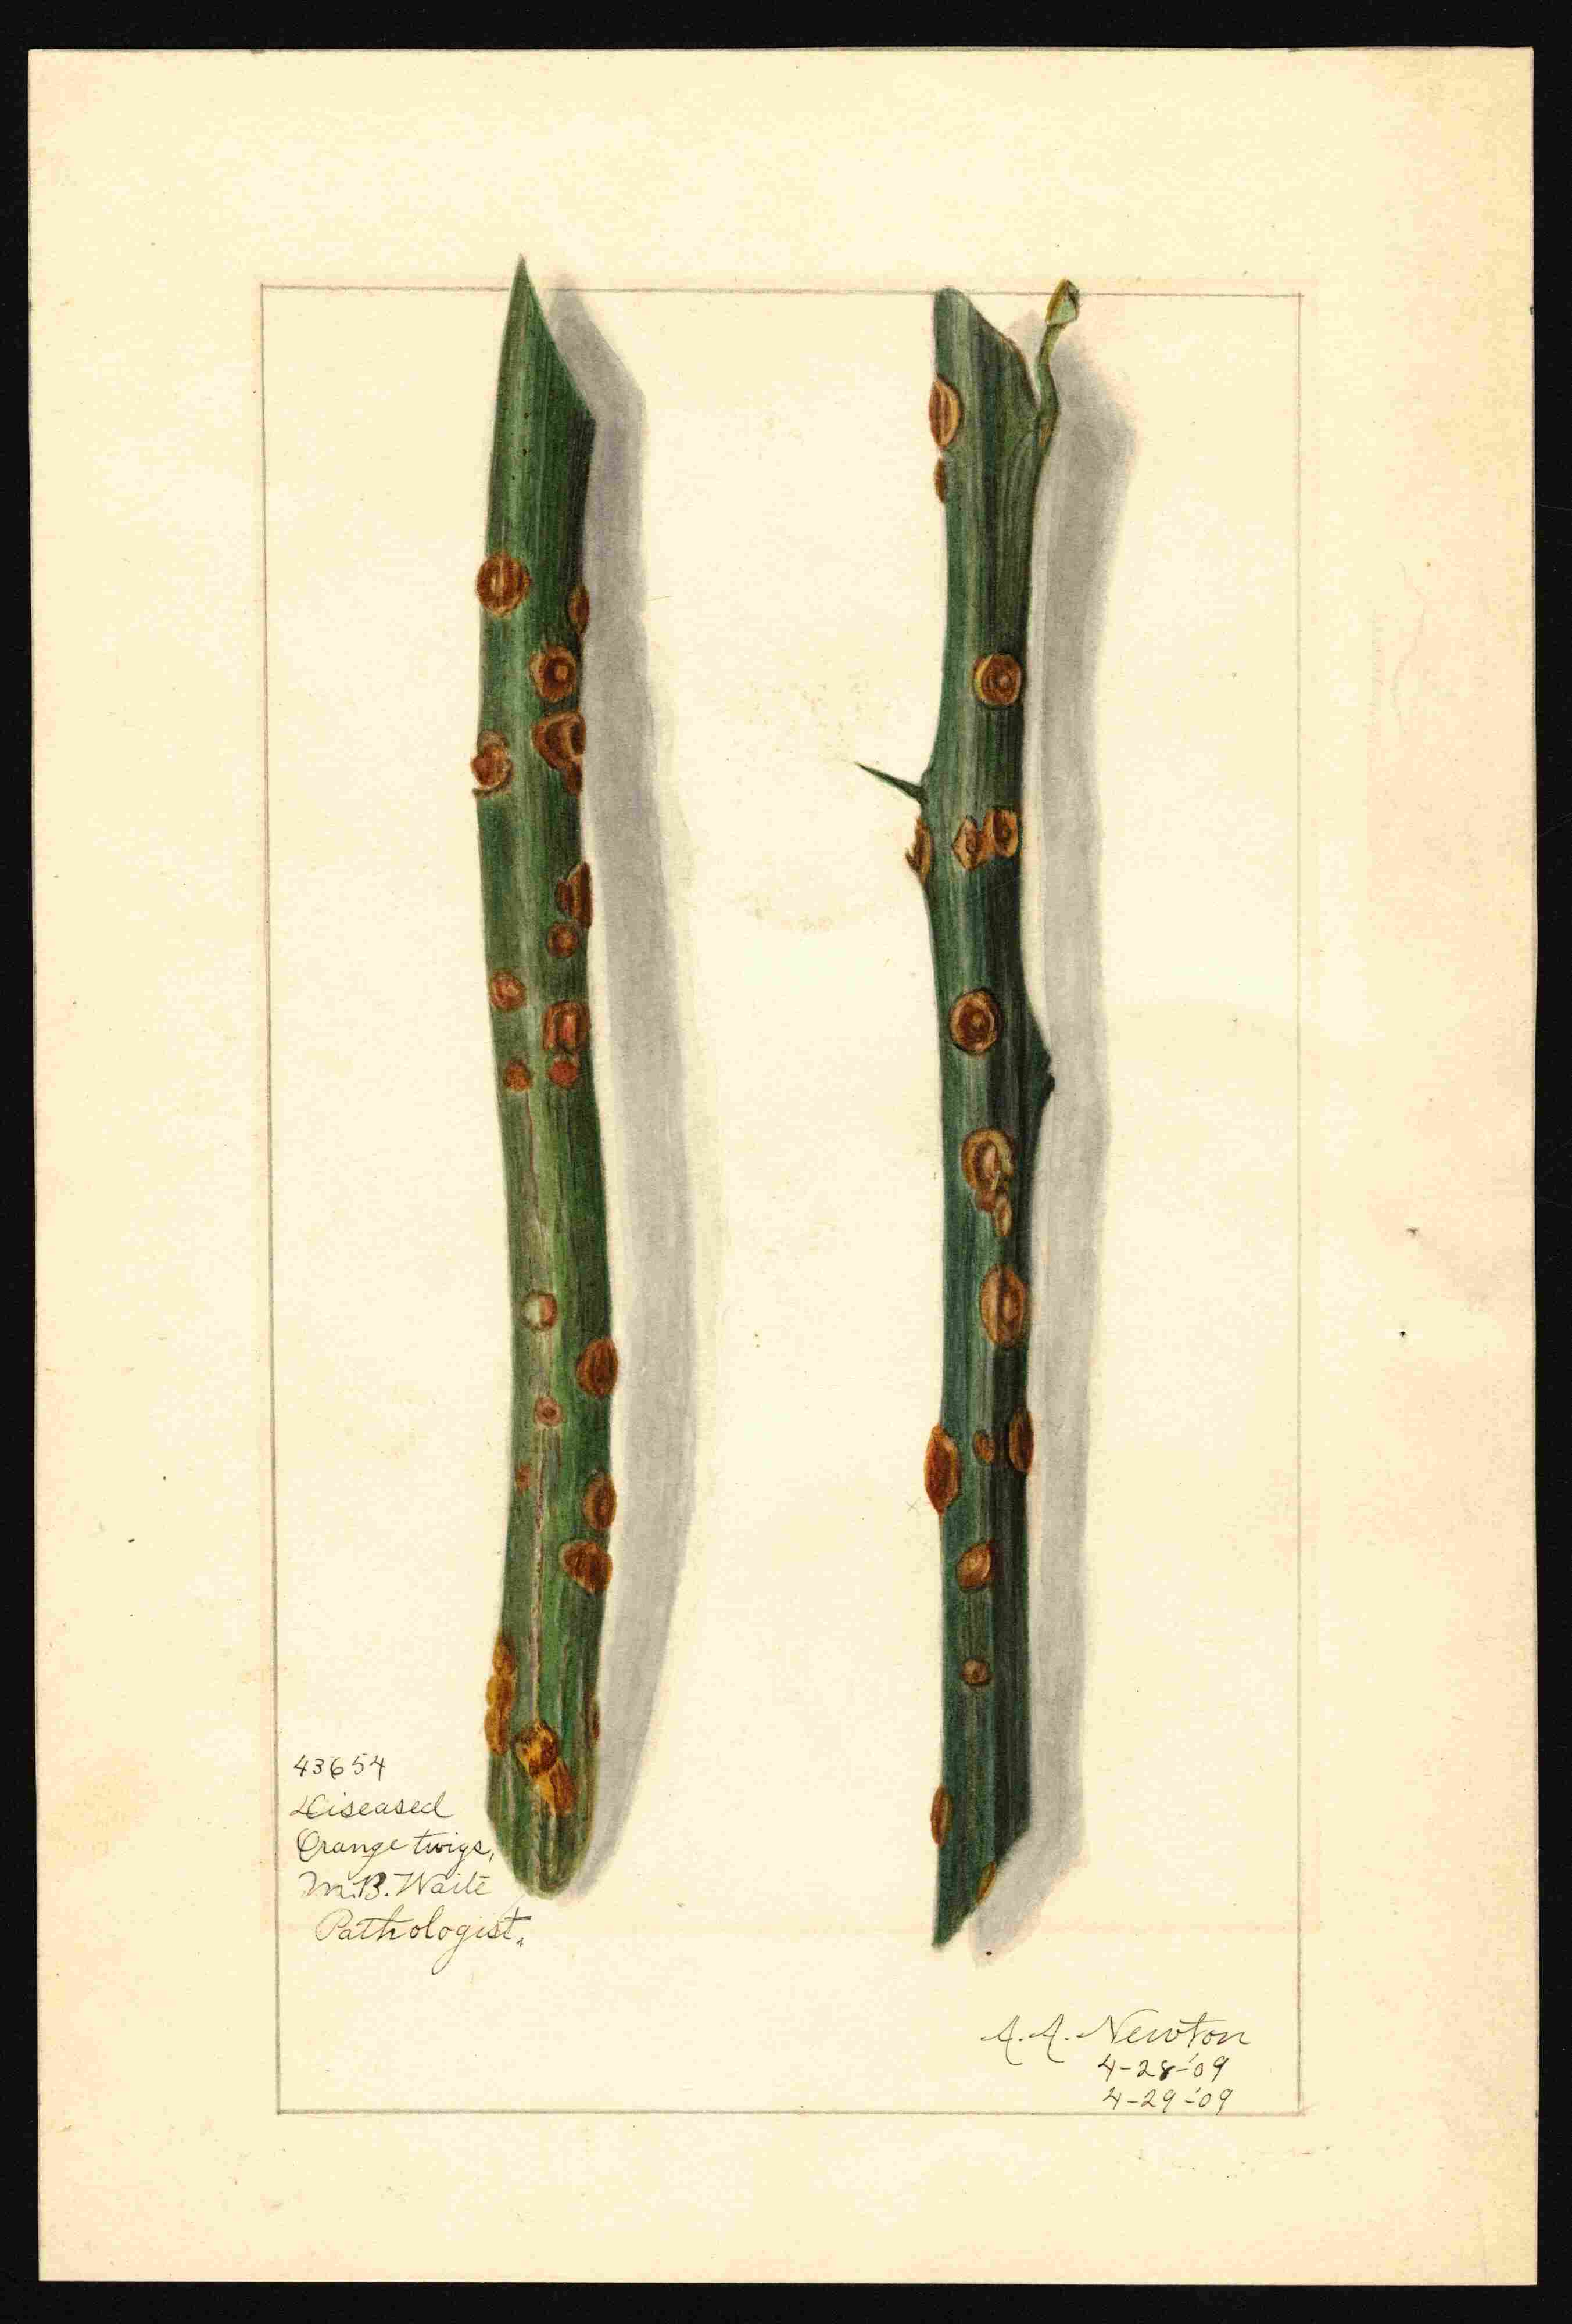 43654
Diseased
Orange twigs,
M.B. Waite
Pathologist.
A.A. Newton
4-28-'09
4-29-'09